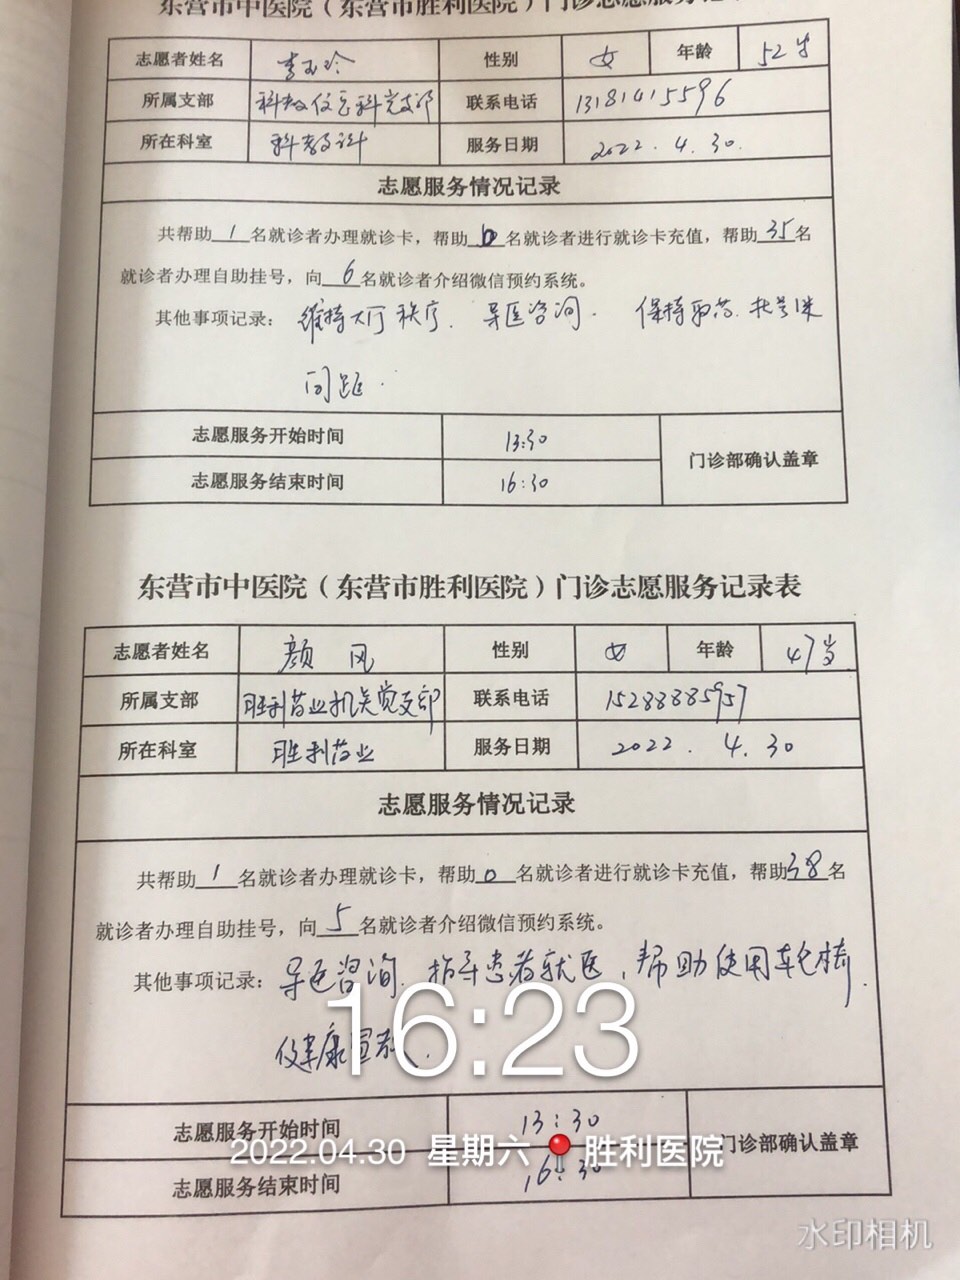 东营市中医院（东营市胜利医院）门诊志愿服务记录表
志愿者姓名 李玉玲 性别 女 年龄 52岁
所属支部 科教信息科党支部 联系电话 13181415596
所在科室 科教科 服务日期 2022.4.30.
志愿服务情况记录
共帮助1名就诊者办理就诊卡，帮助0名就诊者进行就诊卡充值，帮助35名
就诊者办理自助挂号，向6名就诊者介绍微信预约系统。
其他事项记录：维持大厅秩序. 导医咨询. 保持取药.
间距.
志愿服务开始时间 13:30
门诊部确认盖章
志愿服务结束时间 16:30
东营市中医院（东营市胜利医院）门诊志愿服务记录表
志愿者姓名 颜风 性别 女 年龄 47岁
所属支部 胜利药业机关党支部 联系电话 15288885957
所在科室 胜利药业 服务日期 2022.4.30
志愿服务情况记录
共帮助1名就诊者办理就诊卡，帮助0名就诊者进行就诊卡充值，帮助38名
就诊者办理自助挂号，向5名就诊者介绍微信预约系统。
其他事项记录：导医咨询. 指导患者就医，帮助使用轮椅.
健康宣教.
16:23
志愿服务开始时间 13:30
门诊部确认盖章
2022.04.30 星期六 胜利医院
志愿服务结束时间 16:30
水印相机